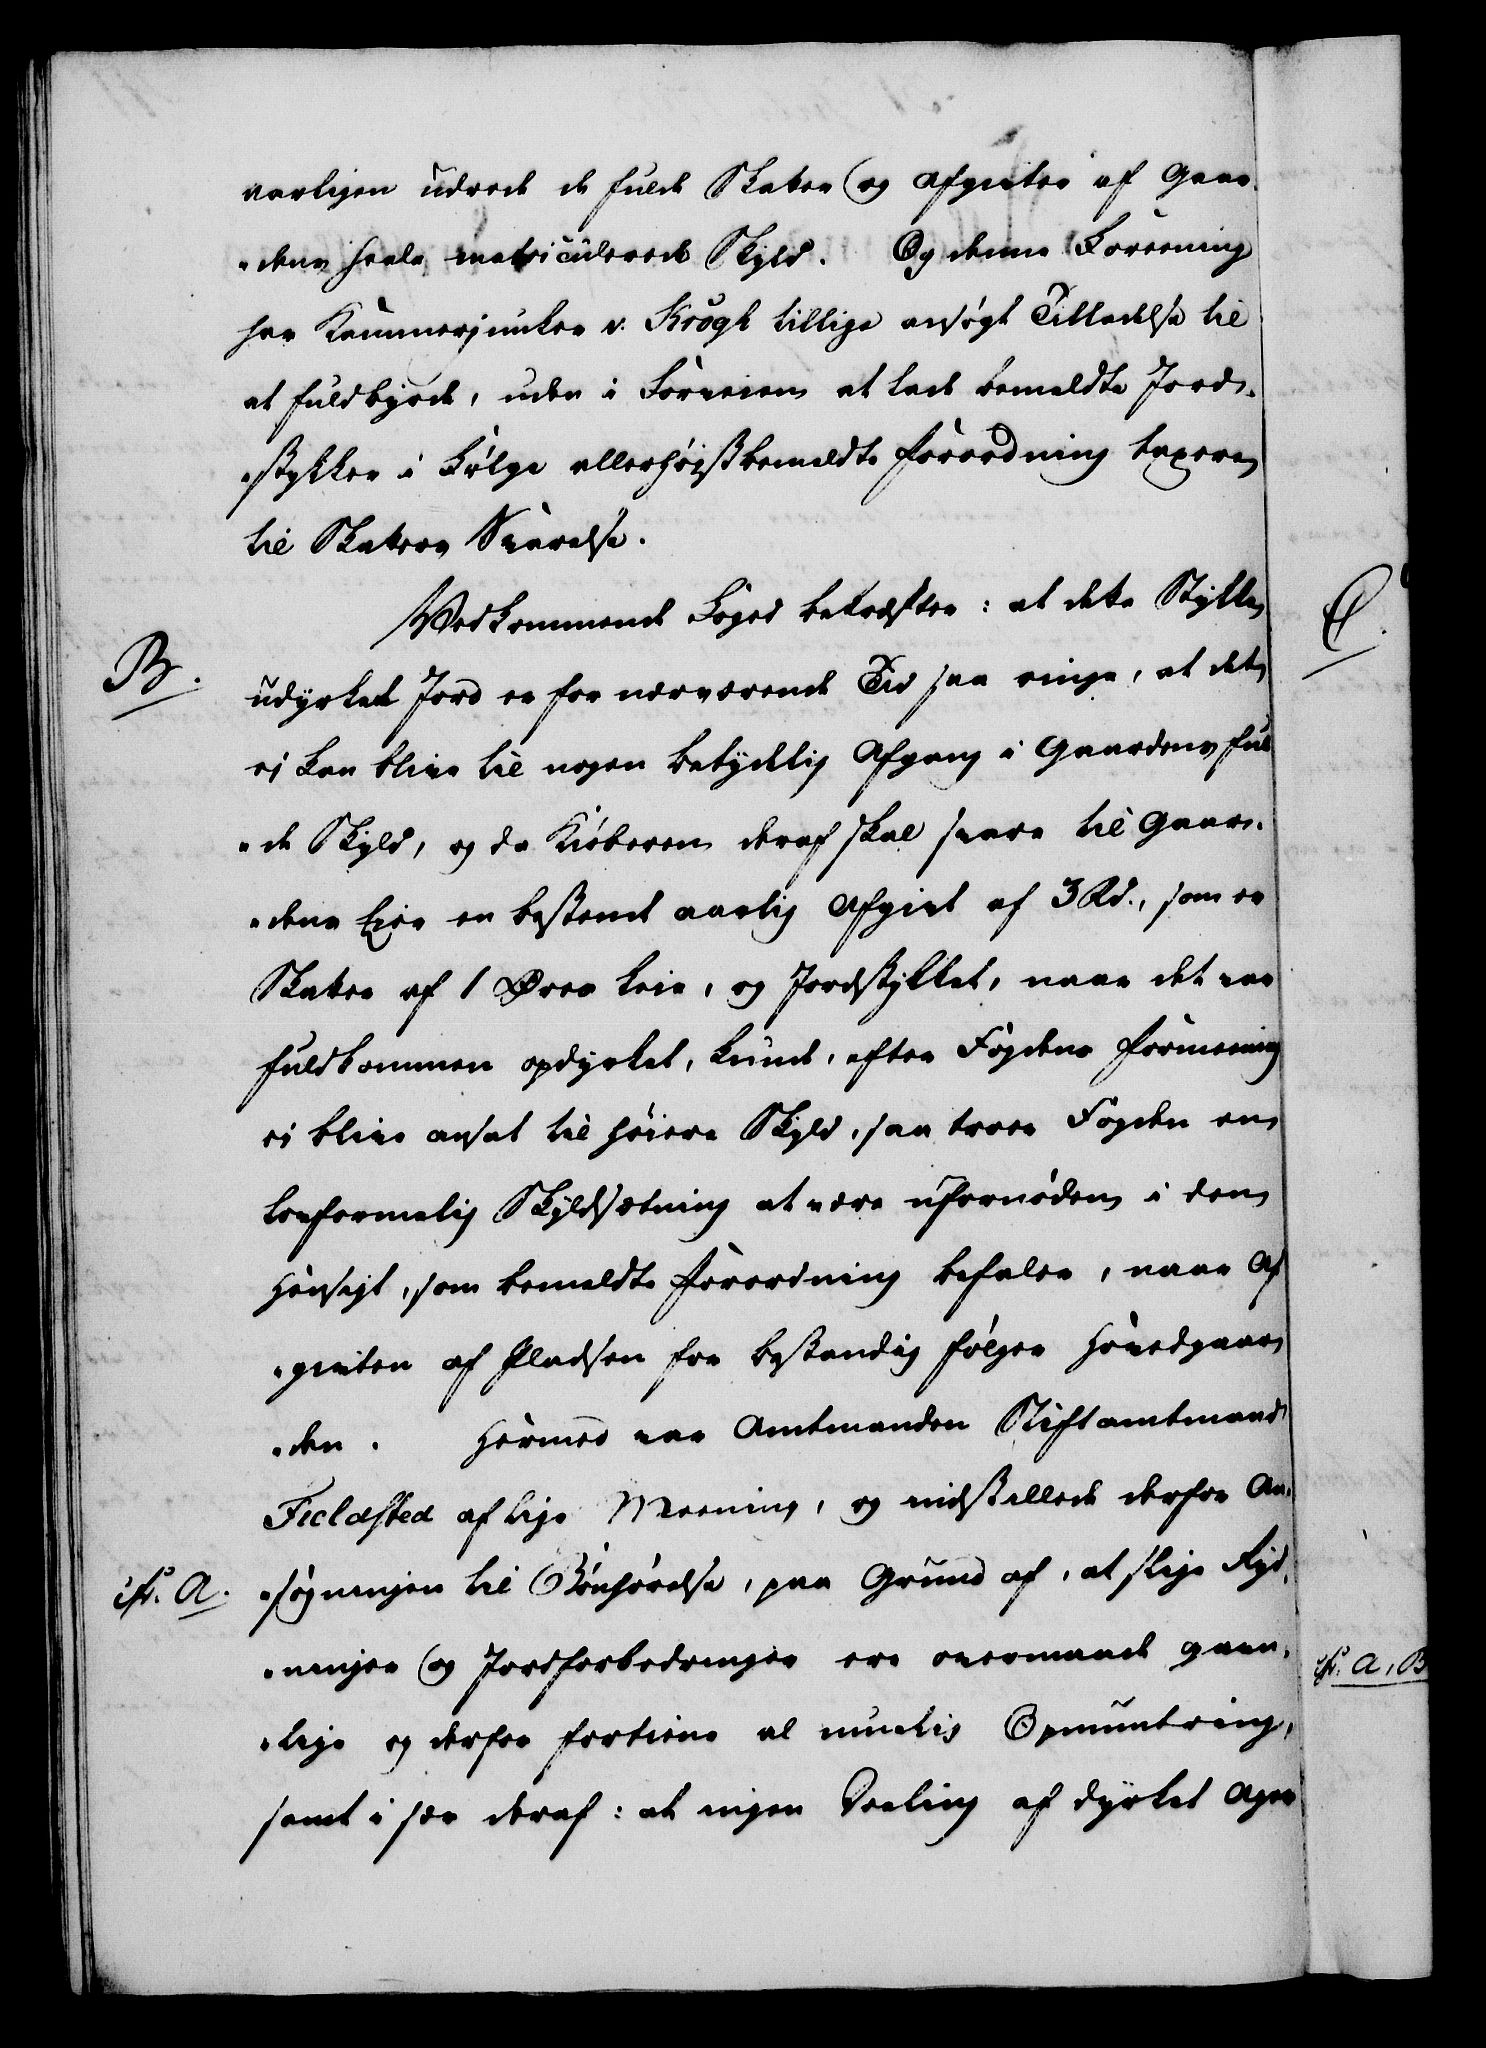 varligen udrede de fulde Skatter og Afgivter af Gaar-
„dens heele matriculerede Skyld. Og denne Foreening
har Kammerjunker v. Krogh tillige ansøgt Tilladelse til
at fuldbyrde, uden i Forveien at lade bemeldte Jord-
„stykker i Følge allerhøistbemeldte Forordning taxeres
til Skatters Svarelse.
Vedkommende Foged betræfter: at dette Stykke
B.
udyrket Jord er for nærværende Tid saa ringe, at det
ei kan blive til nogen betydelig Afgang i Gaardens ful
„de Skyld, og da Kiøberen deraf skal svare til Gaar-
„dens Eier en bestemt aarlig Afgivt af 3 Rd., som er
Skatter af 1 Øres Leie, og Jordstykket, naar det var
fuldkommen opdyrket, kunde, efter Fogdens Formening
ei blive ansat til høiere Skyld, saa troer Fogden en
lovformelig Skyldsætning at være ufornøden i den
Hensigt, som bemeldte Forordning befaler, naar Af
„givten af Pladsen for bestandig følger Hovedgaar
„den. Hermed var Amtmanden Stiftamtmand
Fieldsted af lige Meening, og indstillede derfor An-
cfr. A.
„søgningen til Bønhørelse, paa Grund af, at slige Ryd-
„ninger og Jordforbedringer ere overmaade gavn-
„lige og derfor fortiene al muelig Opmuntring,
samt i sær deraf: at ingen Deeling af dyrket Ager
C.
cfr. A, B